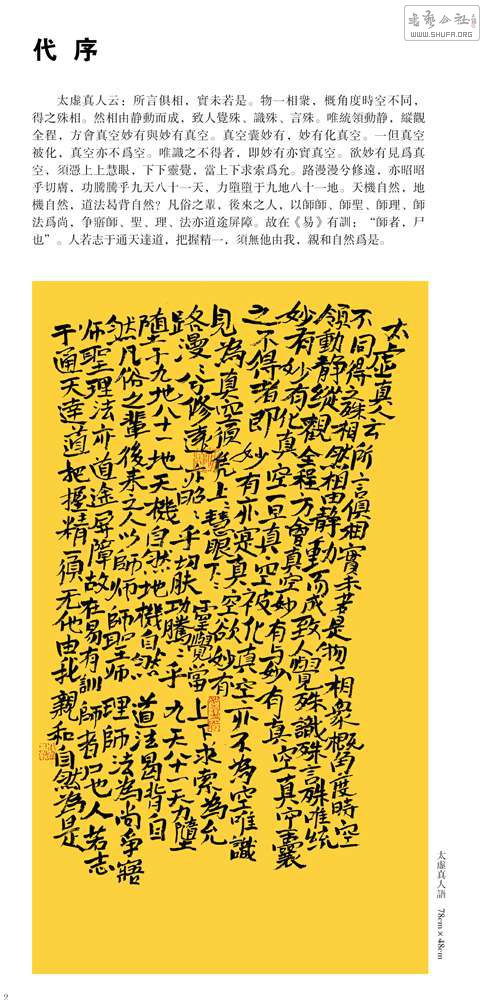 WWW.SHUFA.ORG
代 序
太虛真人云：所言俱相，實未若是。物一相衆，概角度時空不同，
得之殊相。然相由静動而成，致人覺殊、識殊、言殊。唯統領動静，縱觀
全程，方會真空妙有與妙有真空。真空囊妙有，妙有化真空。一但真空
被化，真空亦不爲空。唯識之不得者，即妙有亦實真空。欲妙有見爲真
空，須憑上上慧眼，下下靈覺，當上下求索爲允。路漫漫兮修遠，亦昭昭
乎切膚，功騰騰乎九天八十一天，力墮墮于九地八十一地。天機自然，地
機自然，道法曷背自然？凡俗之輩，後來之人，以師師、師聖、師理、師
法爲尚，争寤師、聖、理、法亦道途屏障。故在《易》有訓：“師者，尸
也”。人若志于通天達道，把握精一，須無他由我，親和自然爲是。
太虛真人云所言俱相實未若是物一相衆概角度時空
不同得之殊相然相由静動而成致人覺殊識殊言殊唯統
領動静縱觀全程方會真空妙有与妙有真空真空囊
妙有妙有化真空一旦真空被化真空亦不為空唯識
之不得者即妙有亦寔真空欲妙有
見為真空須凭上〻慧眼下〻靈覺當上下求索為允
路漫〻兮修遠亦昭〻乎切肤功騰〻乎九天八十一天力墮
墮于九地八十一地天機自然地機自然道法曷背自
然凡俗之輩後来之人以師師師聖師理師法為尚争寤
師聖理法亦道途屏障故在易有訓師者尸也人若志
于通天達道把握精一須无他由我親和自然為是
太虛真人語 78cm×48cm
2